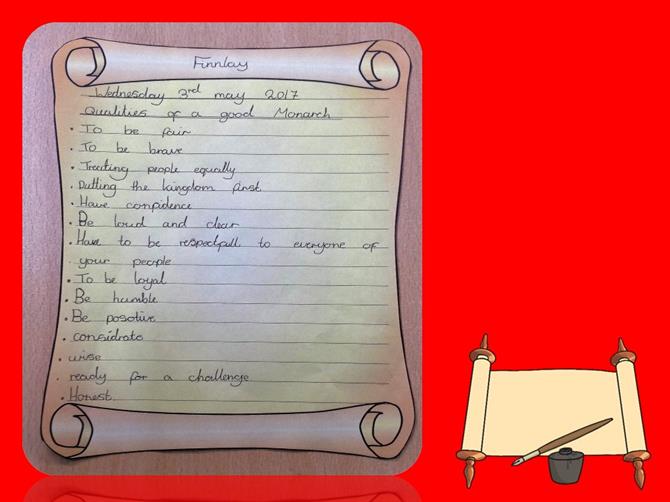 Finnlay
Wednesday 3rd may 2017
Qualities of a good Monarch
• To be fair
• To be brave
• Treating people equally
• Putting the kingdom first
• Have confidence
• Be loud and clear
• Have to be respectfull to everyone of
. your people
• To be loyal
• Be humble
• Be posotive
• considrate
• wise
. ready for a challenge
• Honest.